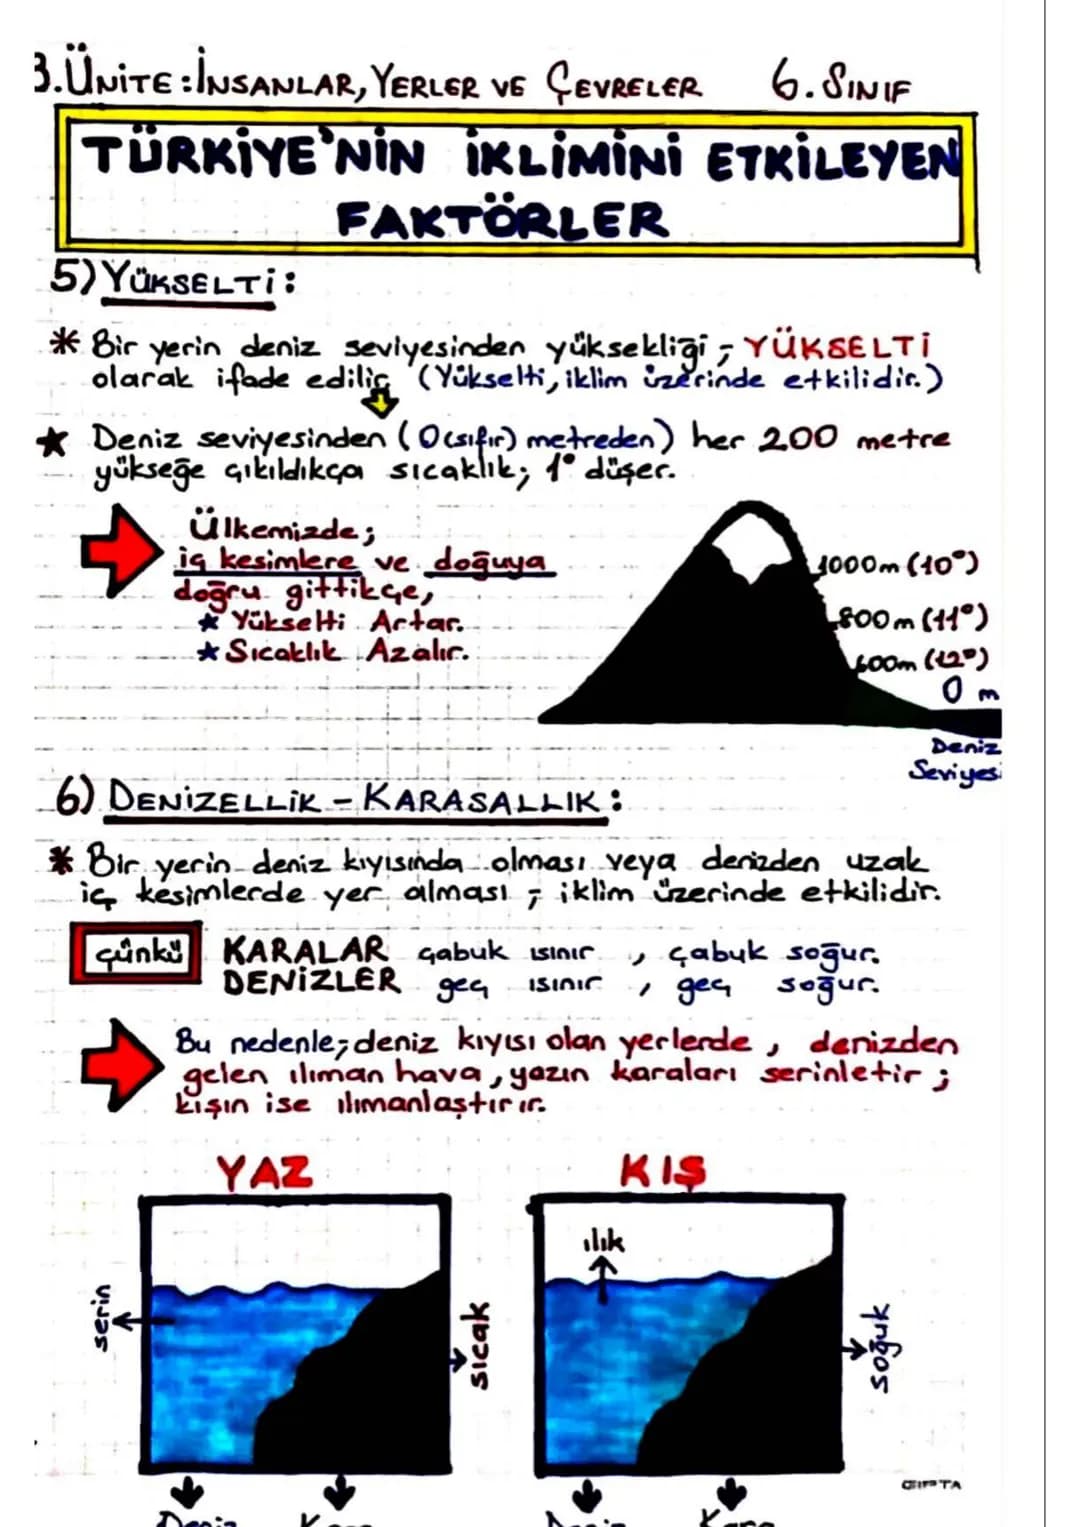 3.ÜNİTE:İNSANLAR, YERLER VE ÇEVRELER 6.SINIF
TÜRKİYE'NİN İKLİMİNİ ETKİLEYEN
FAKTÖRLER
5) YÜKSELTİ:
* Bir yerin deniz seviyesinden yüksekliği; YÜKSELTİ
olarak ifade edilir (Yükselti, iklim üzerinde etkilidir.)
★ Deniz seviyesinden (0(sıfır) metreden) her 200 metre
yükseğe çıkıldıkça sıcaklık; 1° düşer.
Ülkemizde;
iç kesimlere ve doğuya
doğru gittikçe,
★ Yükselti Artar.
★ Sıcaklık Azalır.
1000m (10°)
800m (11°)
600m (12°)
0 m
Deniz
Seviyesi
6) DENİZELLİK - KARASALLIK:
* Bir yerin deniz kıyısında olması veya denizden uzak
iç kesimlerde yer alması; iklim üzerinde etkilidir.
çünkü
KARALAR çabuk ısınır, çabuk soğur.
DENİZLER geç ısınır, geç soğur.
Bu nedenle; deniz kıyısı olan yerlerde, denizden
gelen ılıman hava, yazın karaları serinletir;
kışın ise ılımanlaştırır.
YAZ
KIŞ
serin
sıcak
ılık
soğuk
GIPTA
Deniz Kara
Deniz Kara